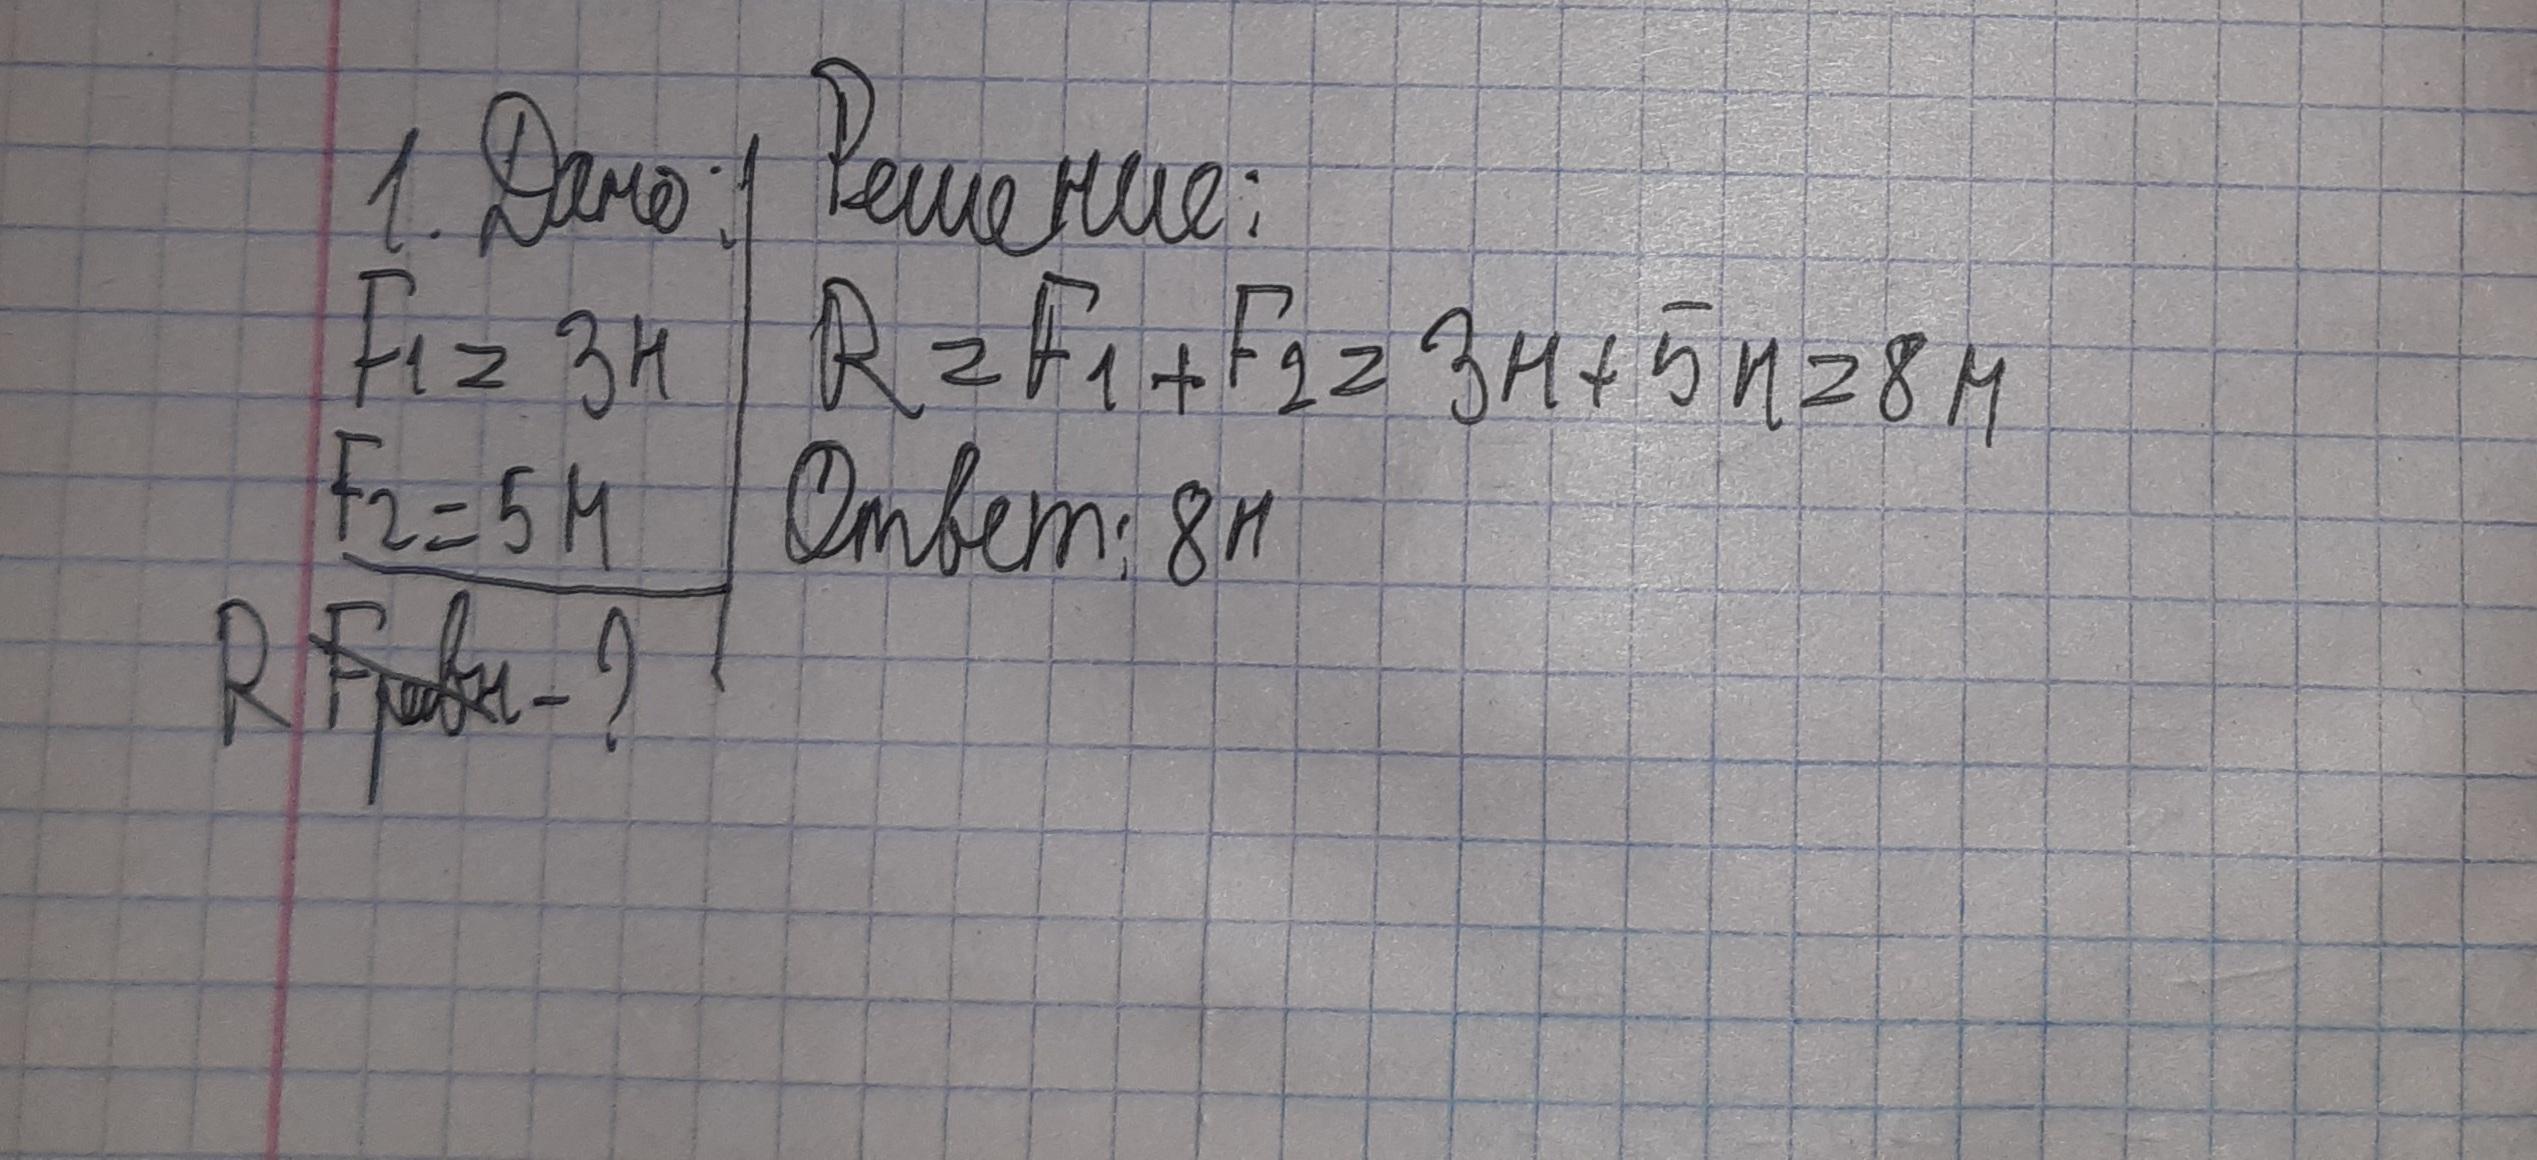 1. Дано:
F1 = 3н
F2 = 5н
R Fравн - ?
Решение:
R = F1 + F2 = 3н + 5н = 8н
Ответ: 8н